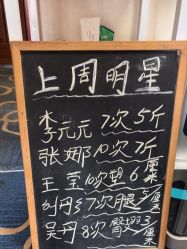 上周明星
李元元 7次 5斤
张娜 10次 7斤
王莹 10次 垫 6厘米
刘丹 57次 腿 5厘米
吴丹 8次 臀翘 3厘米